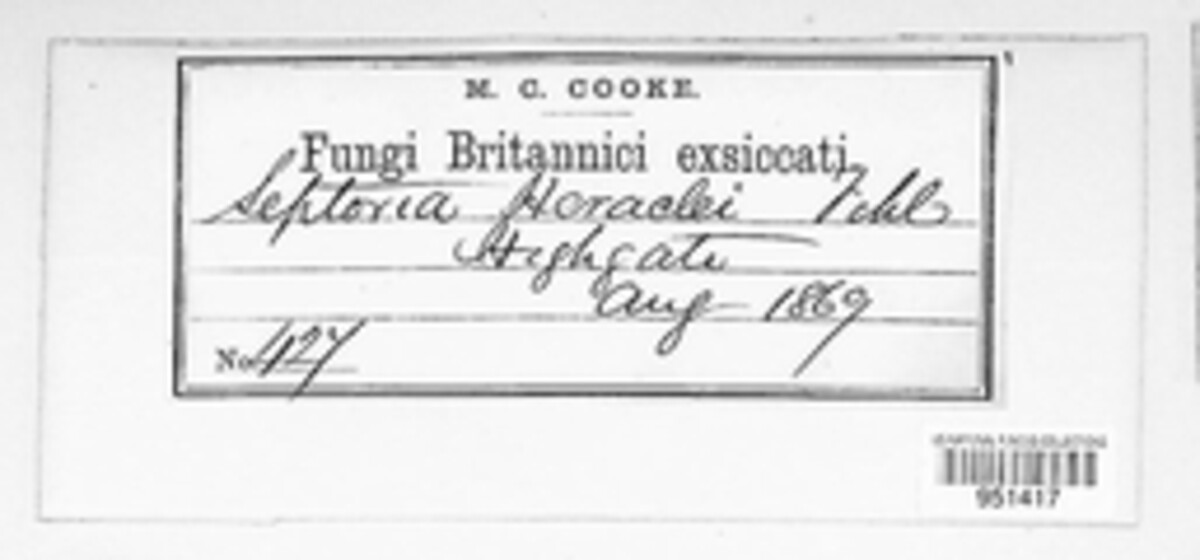 M. C. COOKE.
Fungi Britannici exsiccati,
Septoria Heraclei
Highgate
Aug 1869
No 427
951417